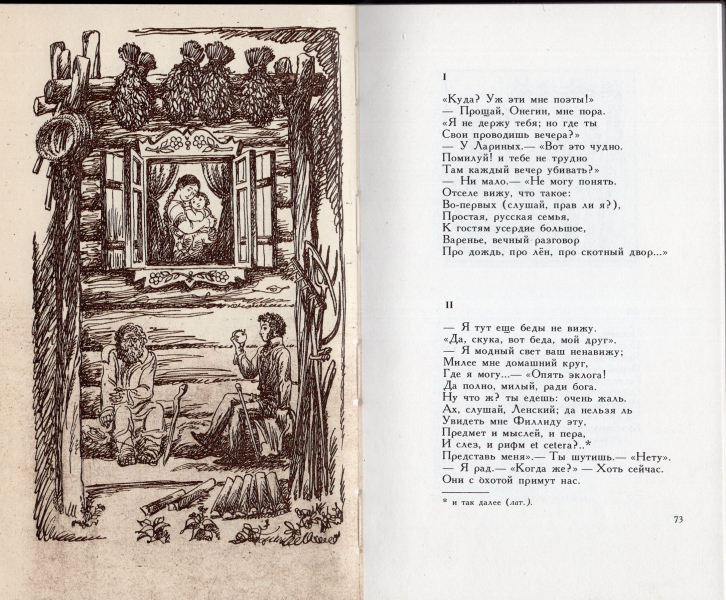 I
«Куда? Уж эти мне поэты!»
— Прощай, Онегин, мне пора.
«Я не держу тебя; но где ты
Свои проводишь вечера?»
— У Лариных.— «Вот это чудно.
Помилуй! и тебе не трудно
Там каждый вечер убивать?»
— Ни мало.— «Не могу понять.
Отселе вижу, что такое:
Во-первых (слушай, прав ли я?),
Простая, русская семья,
К гостям усердие большое,
Варенье, вечный разговор
Про дождь, про лён, про скотный двор...»
II
— Я тут еще беды не вижу.
«Да, скука, вот беда, мой друг».
— Я модный свет ваш ненавижу;
Милее мне домашний круг,
Где я могу...— «Опять эклога!
Да полно, милый, ради бога.
Ну что ж? ты едешь: очень жаль.
Ах, слушай, Ленский; да нельзя ль
Увидеть мне Филлиду эту,
Предмет и мыслей, и пера,
И слез, и рифм et cetera?..*
Представь меня».— Ты шутишь.— «Нету».
— Я рад.— «Когда же?» — Хоть сейчас.
Они с охотой примут нас.
* и так далее (лат.).
73